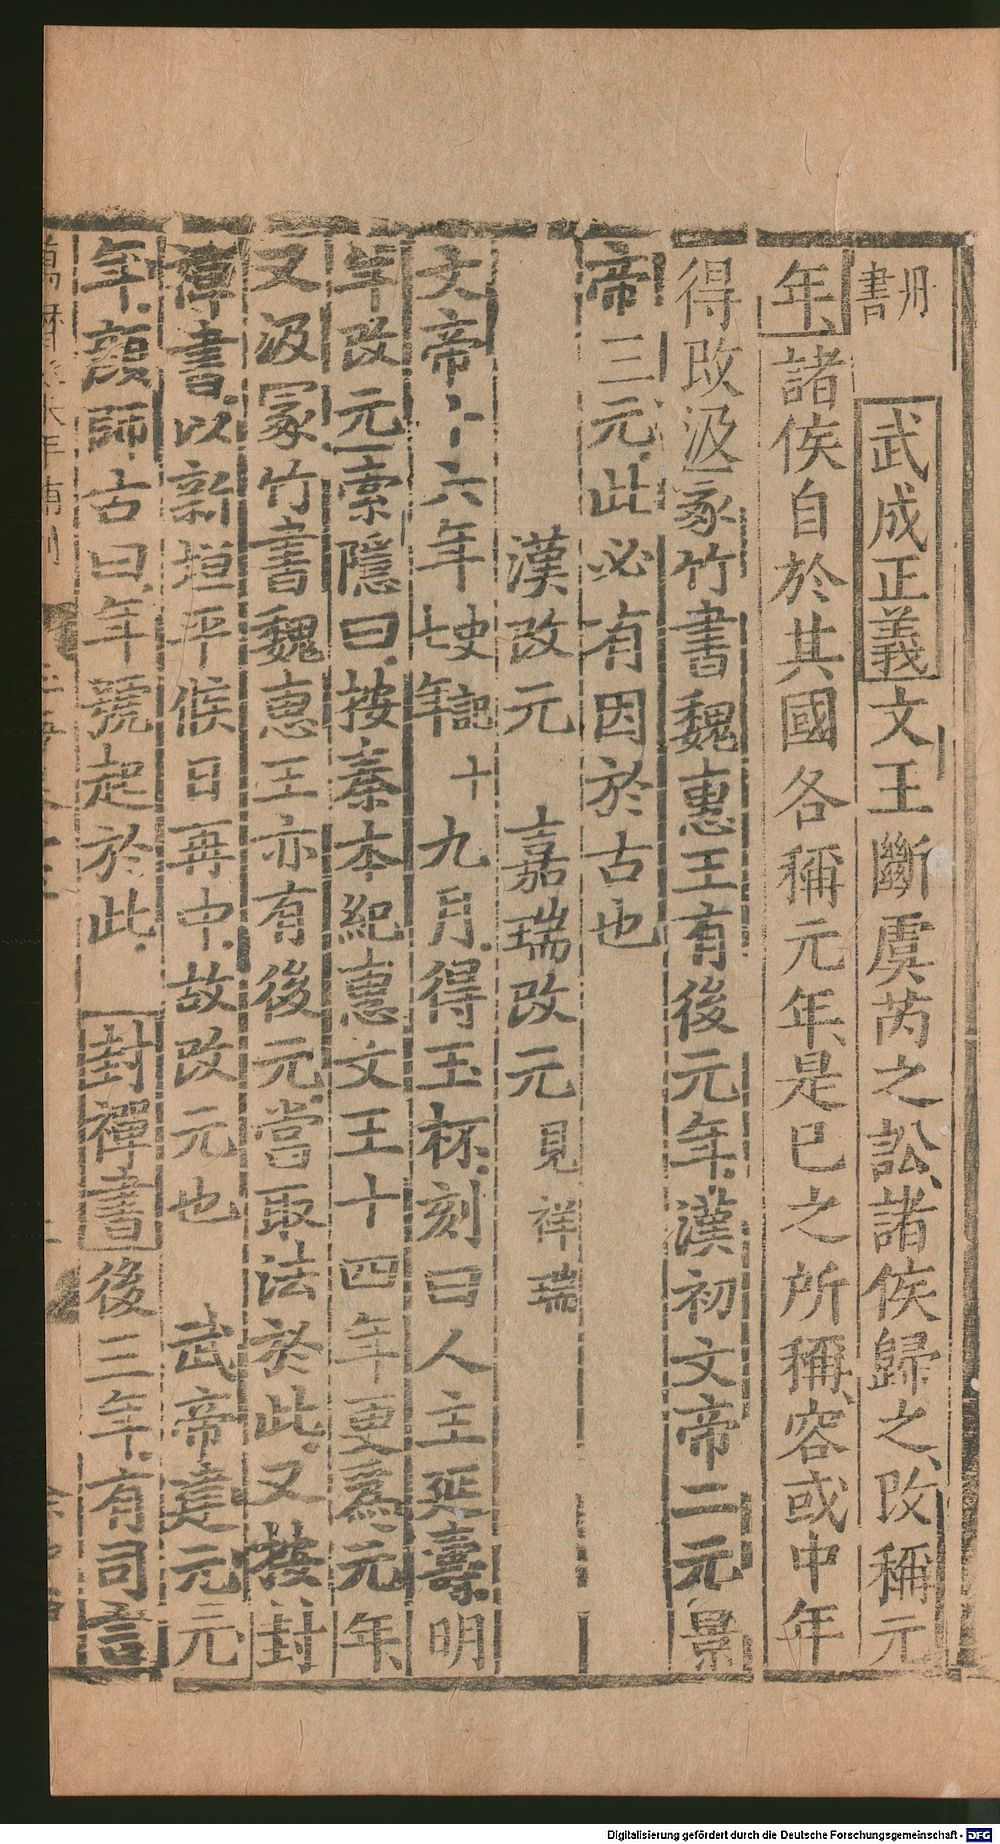 明書　武成正義文王斷虞芮之訟諸侯歸之改稱元
年諸侯自於其國各稱元年是巳之所稱容或中年
得改汲冢竹書魏惠王有後元年漢初文帝二元景
帝三元此必有因於古也
漢改元　嘉瑞改元見祥瑞
文帝十六年史記十七年九月得玉杯刻曰人主延壽明
年改元索隱曰按秦本紀惠文王十四年更爲元年
又汲冢竹書魏惠王亦有後元當取法於此又按封
禪書以新垣平候日再中故改元也　武帝建元元
年顏師古曰年號起於此　封禪書後三年有司言
Digitalisierung gefördert durch die Deutsche Forschungsgemeinschaft - DFG